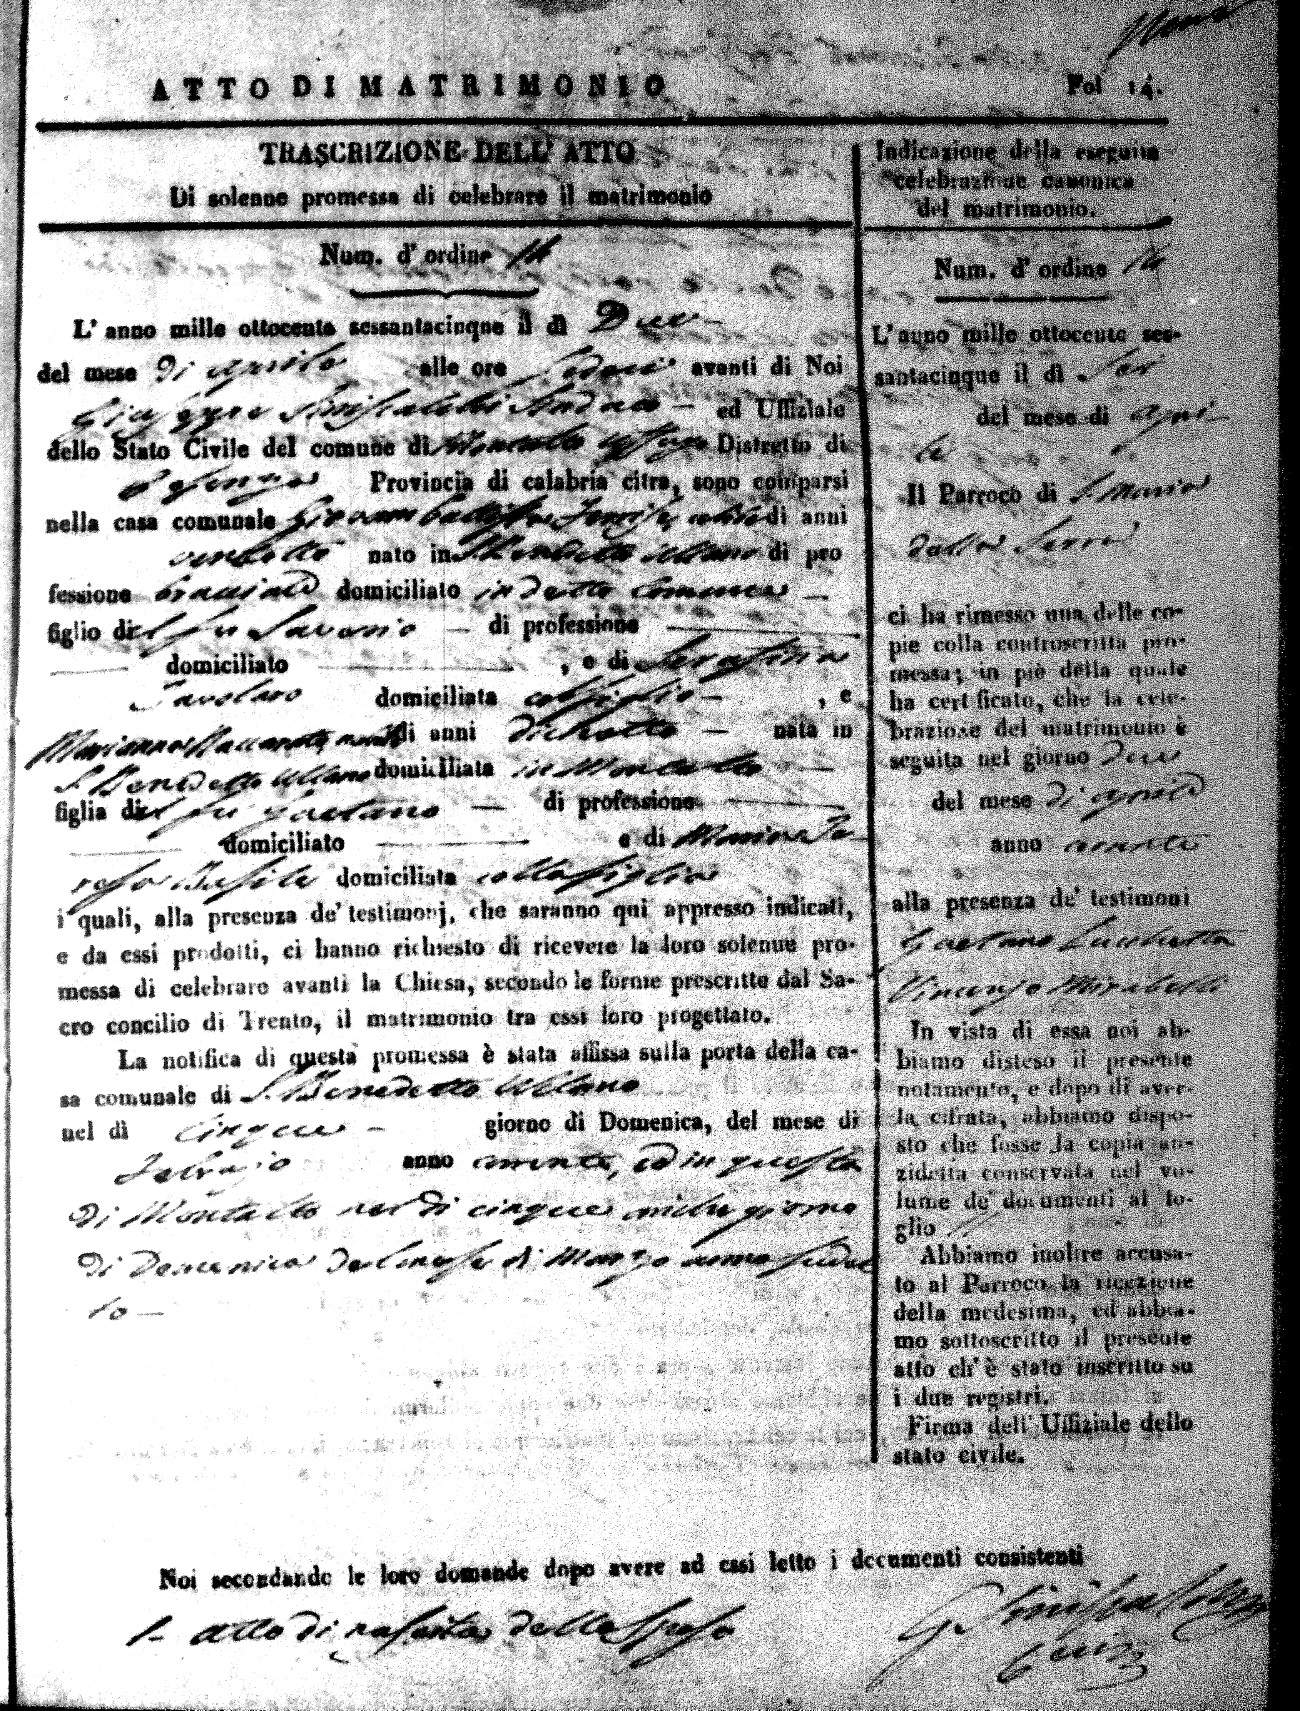 ATTO DI MATRIMONIO
Fol 14.
TRASCRIZIONE DELL' ATTO
Di solenne promessa di celebrare il matrimonio
Num. d' ordine 14
L' anno mille ottocento sessantacinque il dì Due
del mese di aprile alle ore Sedeci avanti di Noi
Giuseppe Sindaco - ed Uffiziale
dello Stato Civile del comune di Montalto Uffugo Distretto di
Cosenza Provincia di calabria citra, sono comparsi
nella casa comunale Giovambattista celibe di anni
ventotto nato in S. Benedetto Ullano di pro
fessione bracciale domiciliato in detto Comune -
figlio del fu Saverio - di professione
domiciliato , e di Serafina
Tavolaro domiciliata col figlio - , e
Marianna di anni diciotto - nata in
S. Benedetto Ullano domiciliata in Montalto -
figlia del fu Gaetano - di professione
domiciliato e di Maria Te
resa Basile domiciliata colla figlia
i quali, alla presenza de' testimonj, che saranno qui appresso indicati,
e da essi prodotti, ci hanno richiesto di ricevere la loro solenne pro-
messa di celebrare avanti la Chiesa, secondo le forme prescritte dal Sa-
cro concilio di Trento, il matrimonio tra essi loro progettato.
La notifica di questa promessa è stata affissa sulla porta della ca-
sa comunale di S. Benedetto Ullano
nel dì Cinque - giorno di Domenica, del mese di
Febrajo anno corrente, ed in questa
di Montalto nel dì cinque anche giorno
di Domenica del mese di Marzo anno sudet
to -
Indicazione della eseguita
celebrazione canonica
del matrimonio.
Num. d' ordine 14
L' anno mille ottocento ses-
santacinque il dì Sei
del mese di apri-
le
Il Parroco di S. Maria
della Serra
ci ha rimesso una delle co-
pie colla controscritta pro-
messa; in piè della quale
ha certificato, che la cele-
brazione del matrimonio è
seguita nel giorno due
del mese di aprile
anno corrente
alla presenza de' testimoni
Gaetano Lucchetta
Vincenzo Mirabelli
In vista di essa noi ab-
biamo disteso il presente
notamento, e dopo di aver-
la cifrata, abbiamo dispo-
sto che fosse la copia an-
zidetta conservata nel vo-
lume de' documenti al fo-
glio
Abbiamo inoltre accusa-
to al Parroco la ricezione
della medesima, ed abbia-
mo sottoscritto il presente
atto ch' è stato inscritto su
i due registri.
Firma dell' Uffiziale dello
stato civile.
Noi secondando le loro domande dopo avere ad essi letto i documenti consistenti
1- atto di nascita dello Sposo